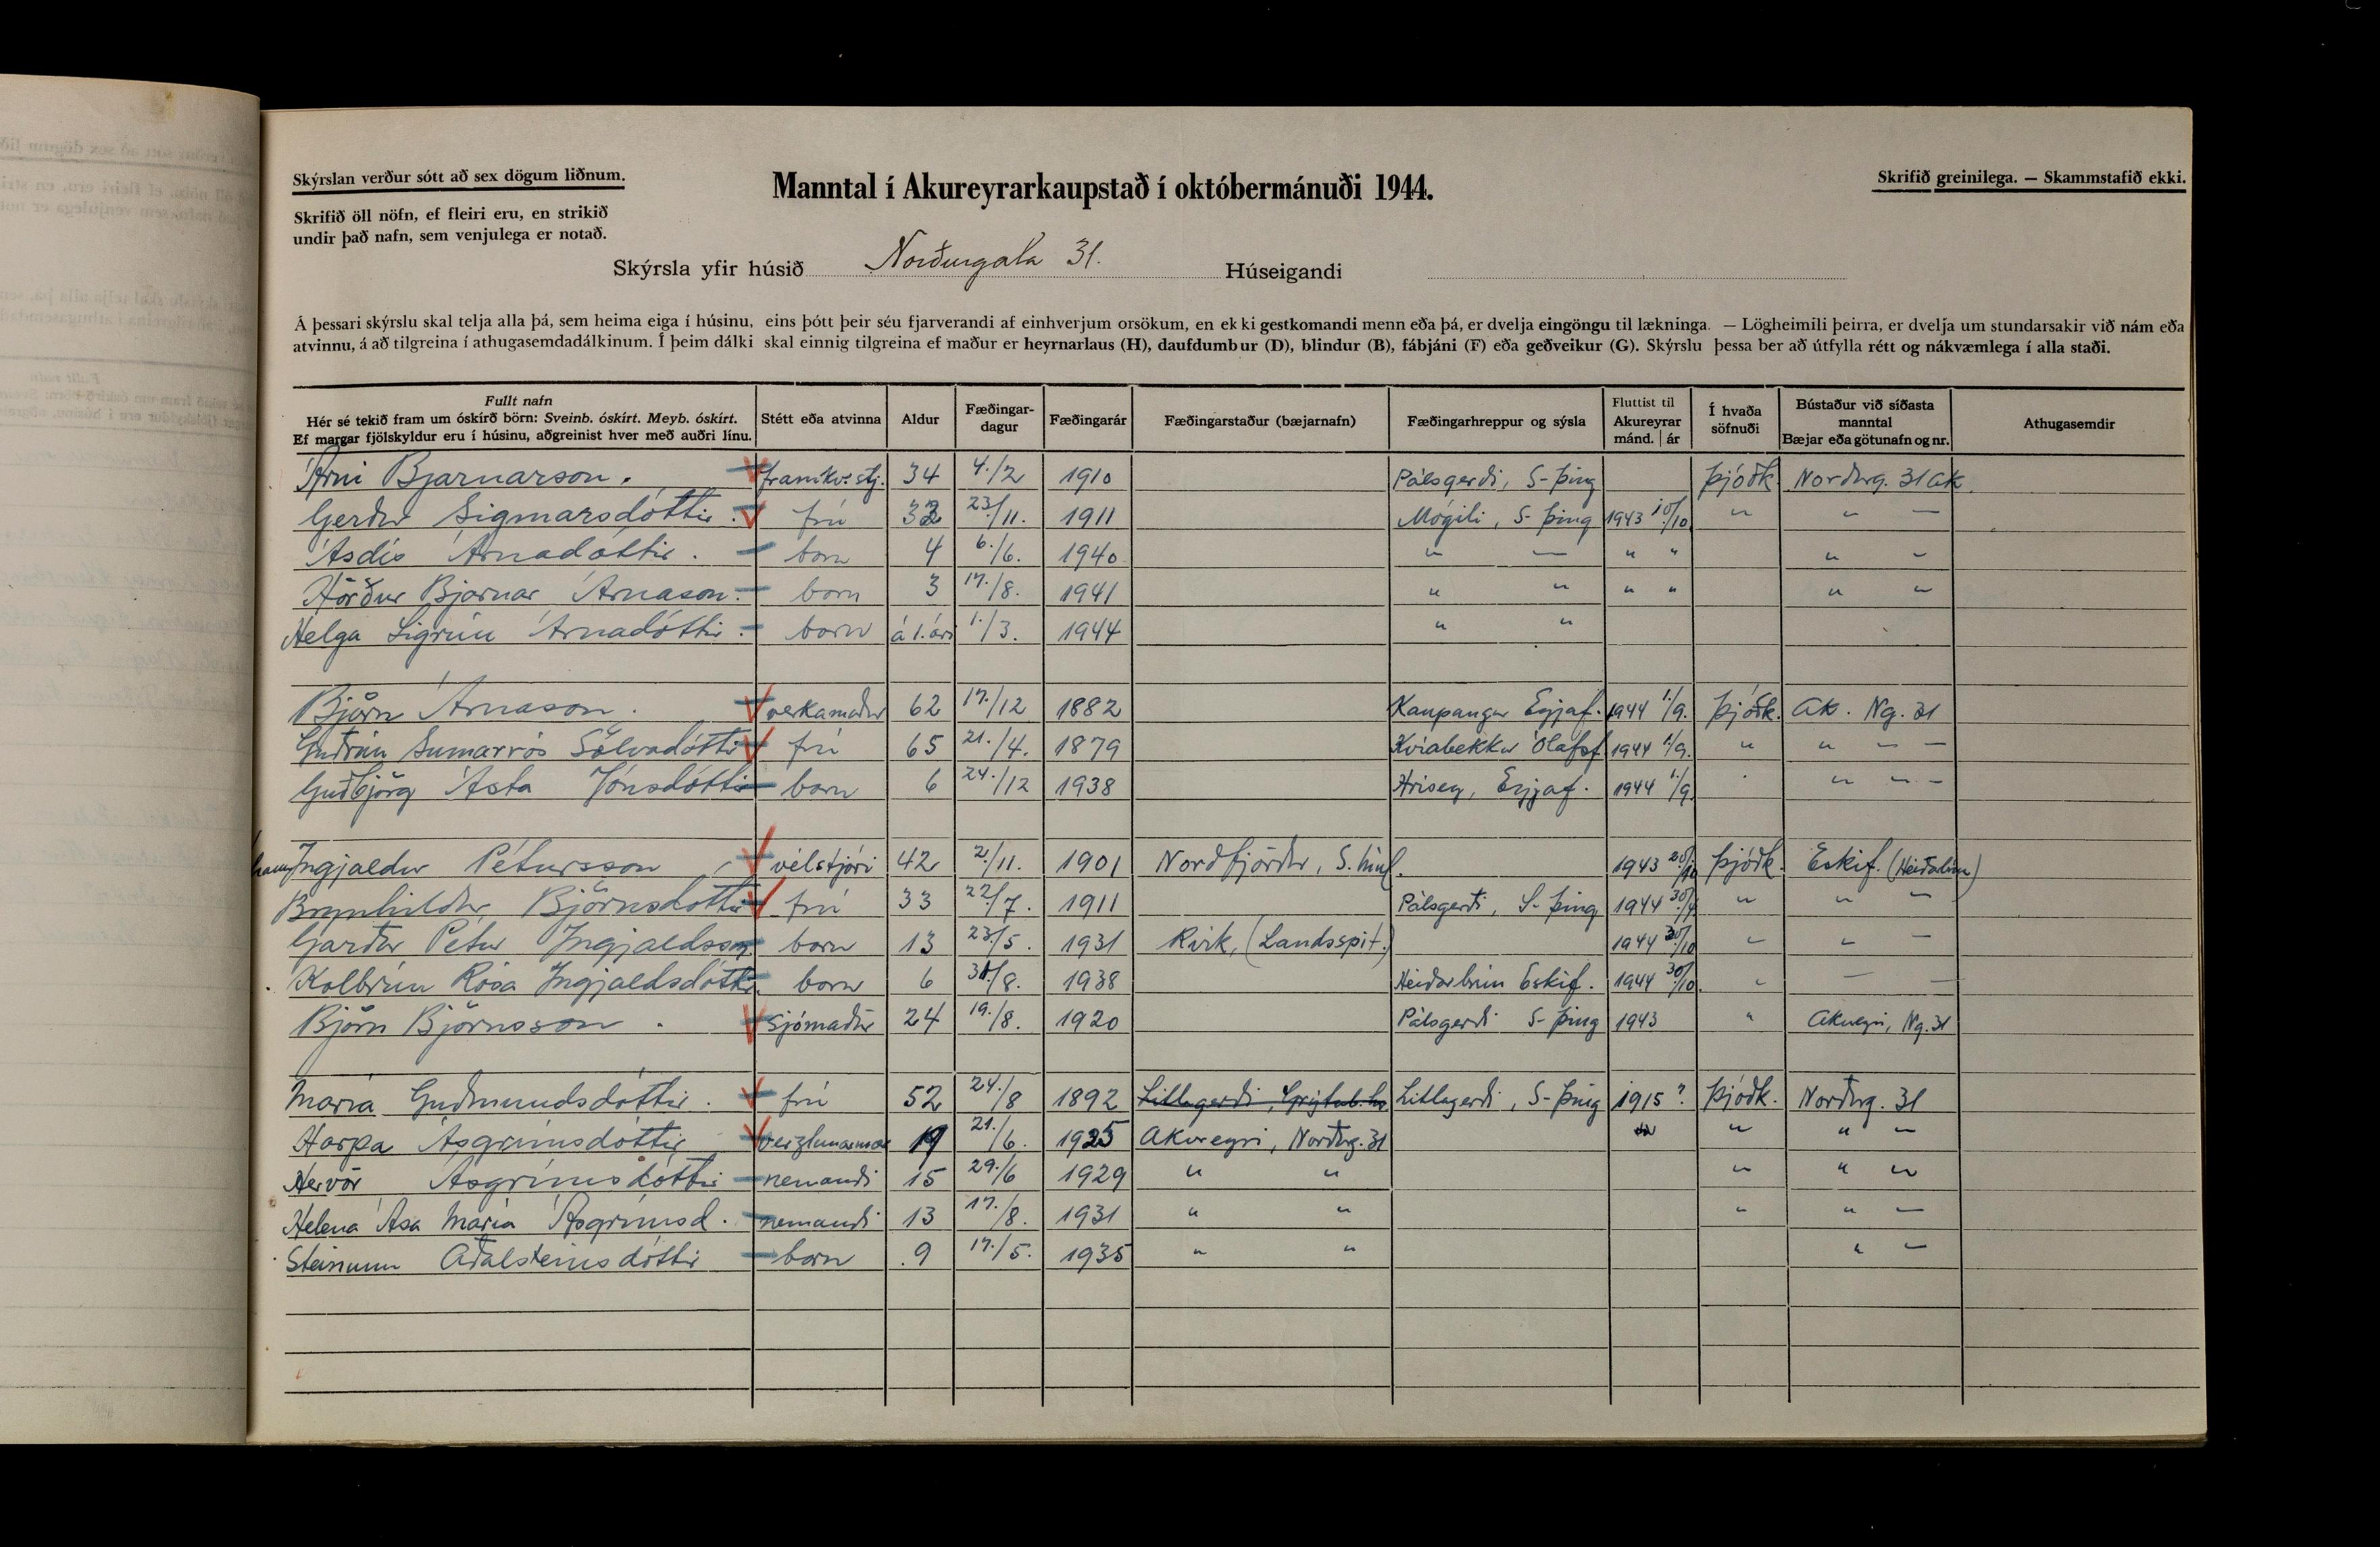 Skýrslan verður sótt að sex dögum liðnum.
Manntal í Akureyrarkaupstað í októbermánuði 1944.
Skrifið greinilega. — Skammstafið ekki.
Skrifið öll nöfn, ef fleiri eru, en strikið
undir það nafn, sem venjulega er notað.
Skýrsla yfir húsið Norðurgata 31. Húseigandi
Á þessari skýrslu skal telja alla þá, sem heima eiga í húsinu, eins þótt þeir séu fjarverandi af einhverjum orsökum, en ekki gestkomandi menn eða þá, er dvelja eingöngu til lækninga. — Lögheimili þeirra, er dvelja um stundarsakir við nám eða
atvinnu, á að tilgreina í athugasemdadálkinum. Í þeim dálki skal einnig tilgreina ef maður er heyrnarlaus (H), daufdumbur (D), blindur (B), fábjáni (F) eða geðveikur (G). Skýrslu þessa ber að útfylla rétt og nákvæmlega í alla staði.
Fullt nafn
Hér sé tekið fram um óskírð börn: Sveinb. óskírt. Meyb. óskírt.
Ef margar fjölskyldur eru í húsinu, aðgreinist hver með auðri línu.
Stétt eða atvinna
Aldur
Fæðingar-
dagur
Fæðingarár
Fæðingarstaður (bæjarnafn)
Fæðingarhreppur og sýsla
Fluttist til
Akureyrar
mánd. | ár
Í hvaða
söfnuði
Bústaður við síðasta
manntal
Bæjar eða götunafn og nr.
Athugasemdir
Árni Bjarnarson. framkv.stj. 34 4./2 1910 Pálsgerði, S-Þing Þjóðk Norðurg. 31 Ak.
Gerður Sigmarsdóttir. frú 33 23/11. 1911 Mógili, S-Þing 1943 10/10 " " —
Ásdís Árnadóttir. barn 4 6./6. 1940 " — " " " "
Hörður Bjarnar Árnason. barn 3 17./8. 1941 " " " " " "
Helga Sigrún Árnadóttir. barn á 1. ári 1./3. 1944 " "
Björn Árnason. verkamaður 62 17./12 1882 Kaupangur Eyjaf. 1944 1./9. Þjóðk. Ak. Ng. 31
Guðrún Sumarrós Sölvadóttir frú 65 21./4. 1879 Kvíabekkur Ólafsf. 1944 1/9. " " " —
Guðbjörg Ásta Jónsdóttir barn 6 24./12 1938 Hrísey, Eyjaf. 1944 1./9. " " —
Ingjaldur Pétursson vélstjóri 42 2./11. 1901 Norðfjörður, S. Múl. 1943 Þjóðk. Eskif. (Heiðarbrún)
Brynhildur Björnsdóttir frú 33 22/7. 1911 Pálsgerði, S-Þing 1944 " " —
Garðar Pétur Ingjaldsson barn 13 23./5. 1931 Rvík, (Landsspít.) 1944 30/10 " " —
Kolbrún Rósa Ingjaldsdóttir barn 6 31/8. 1938 Heiðarbrún Eskif. 1944 30/10. " — —
Björn Björnsson. sjómaður 24 19./8. 1920 Pálsgerði S-Þing 1943 " Akureyri, Ng. 31
María Guðmundsdóttir. frú 52 24./8 1892 Litlagerði, Grýtub.hr Litlagerði, S-Þing 1915 ? Þjóðk. Norðurg. 31
Harpa Ásgrímsdóttir verzlunarmær 19 21./6. 1925 Akureyri, Norðurg. 31 " " —
Hervör Ásgrímsdóttir nemandi 15 29./6 1929 " " " " "
Helena Ása María Ásgrímsd. nemandi 13 17./8. 1931 " " " " —
Steinunn Aðalsteinsdóttir barn 9 17./5. 1935 " " " —